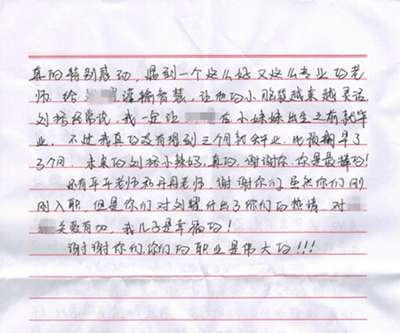 真的特别感动,遇到一个这么好又这么专业的老
师。给 灌输智慧,让他的小脑袋越来越灵活
刘 经常说,我一定让 在小妹妹出生之前就毕
业,不过我真的没有想到三个月就毕业,比预期早了
3个月,未来的刘 小辣妈,真的,谢谢你,你是最棒的!
还有平平老师和丹丹老师,谢谢你们,虽然你们刚
刚入职,但是你们对刘 付出了你们的热情,对
关爱有加,我儿子是幸福的!
谢谢你们,你们的职业是伟大的!!!